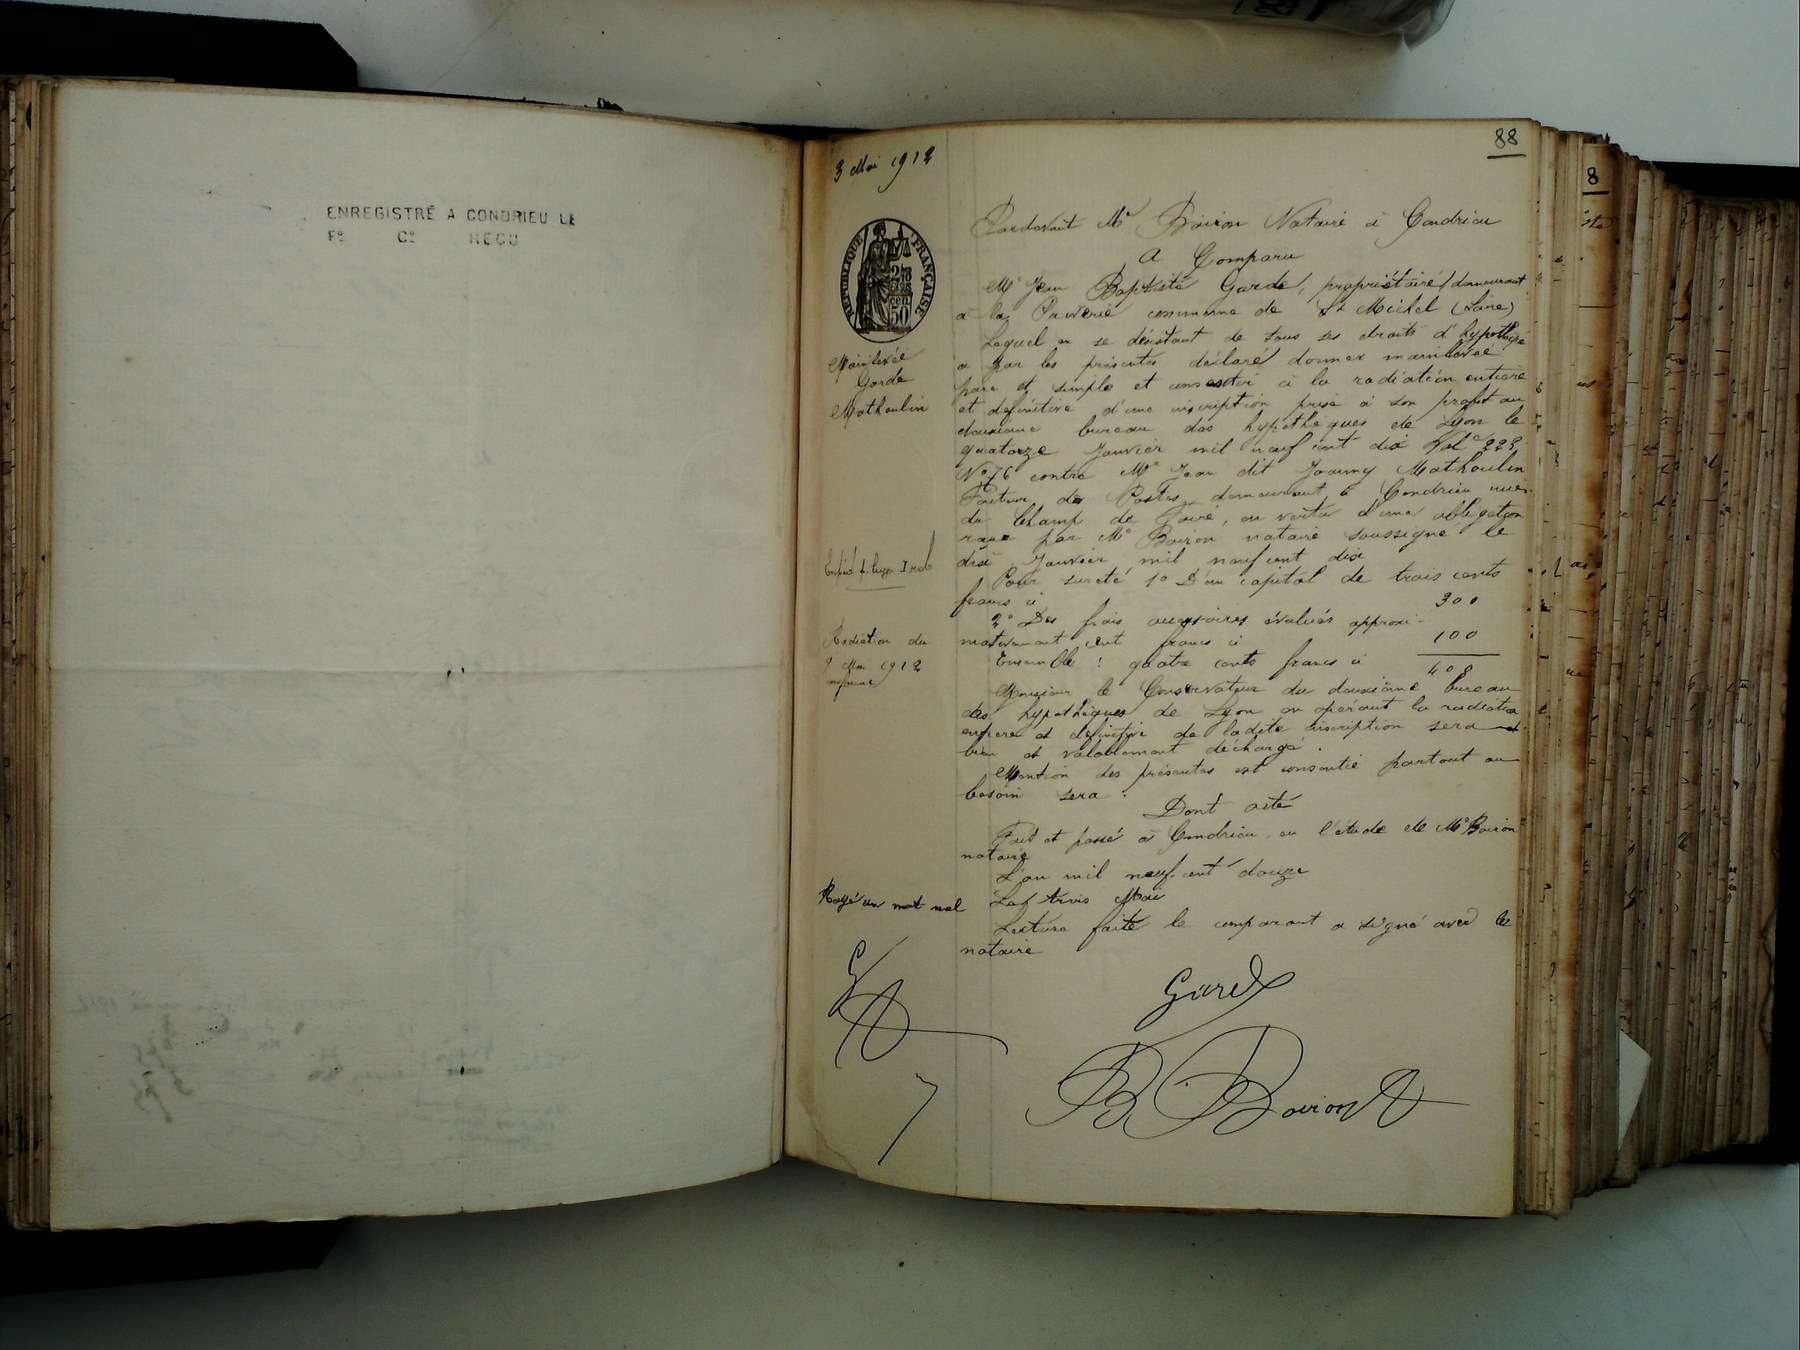 ENREGISTRÉ A CONDRIEU LE
F° C° REÇU
88
3 Mai 1912
RÉPUBLIQUE FRANÇAISE
50
Mainlevée
Garde
Mathoulin
Radiation du
9 Mai 1912
Rayé un mot nul
Pardevant Me Boiron Notaire à Condrieu
A Comparu
Mr Jean Baptiste Garde, propriétaire, demeurant
à la commune de St Michel (Loire)
Lequel en se désistant de tous ses droits d'hypothèque
a par les présentes déclaré donner mainlevée
pure et simple et consentir à la radiation entière
et définitive d'une inscription prise à son profit au
deuxième bureau des hypothèques de Lyon le
quatorze Janvier mil neuf cent dix Vol. 223
N° 76 contre Mr Jean dit Joanny Mathoulin
Facteur des Postes, demeurant à Condrieu rue
du Champ de Foire, en vertu d'une obligation
reçue par Me Boiron notaire soussigné le
dix Janvier mil neuf cent dix
Pour sureté 1° D'un capital de trois cents
francs ci 300
2° Des frais accessoires évalués approxi-
mativement cent francs ci 100
Ensemble : quatre cents francs ci 400
Monsieur le Conservateur du deuxième bureau
des hypothèques de Lyon en opérant la radiation
entière et définitive de ladite inscription sera
bien et valablement déchargé.
Mention des présentes est consentie partout ou
besoin sera.
Dont acte
Fait et passé à Condrieu en l'étude de Me Boiron
notaire
L'an mil neuf cent douze
Le trois Mai
Lecture faite le comparant a signé avec le
notaire
Garde
Boiron
8